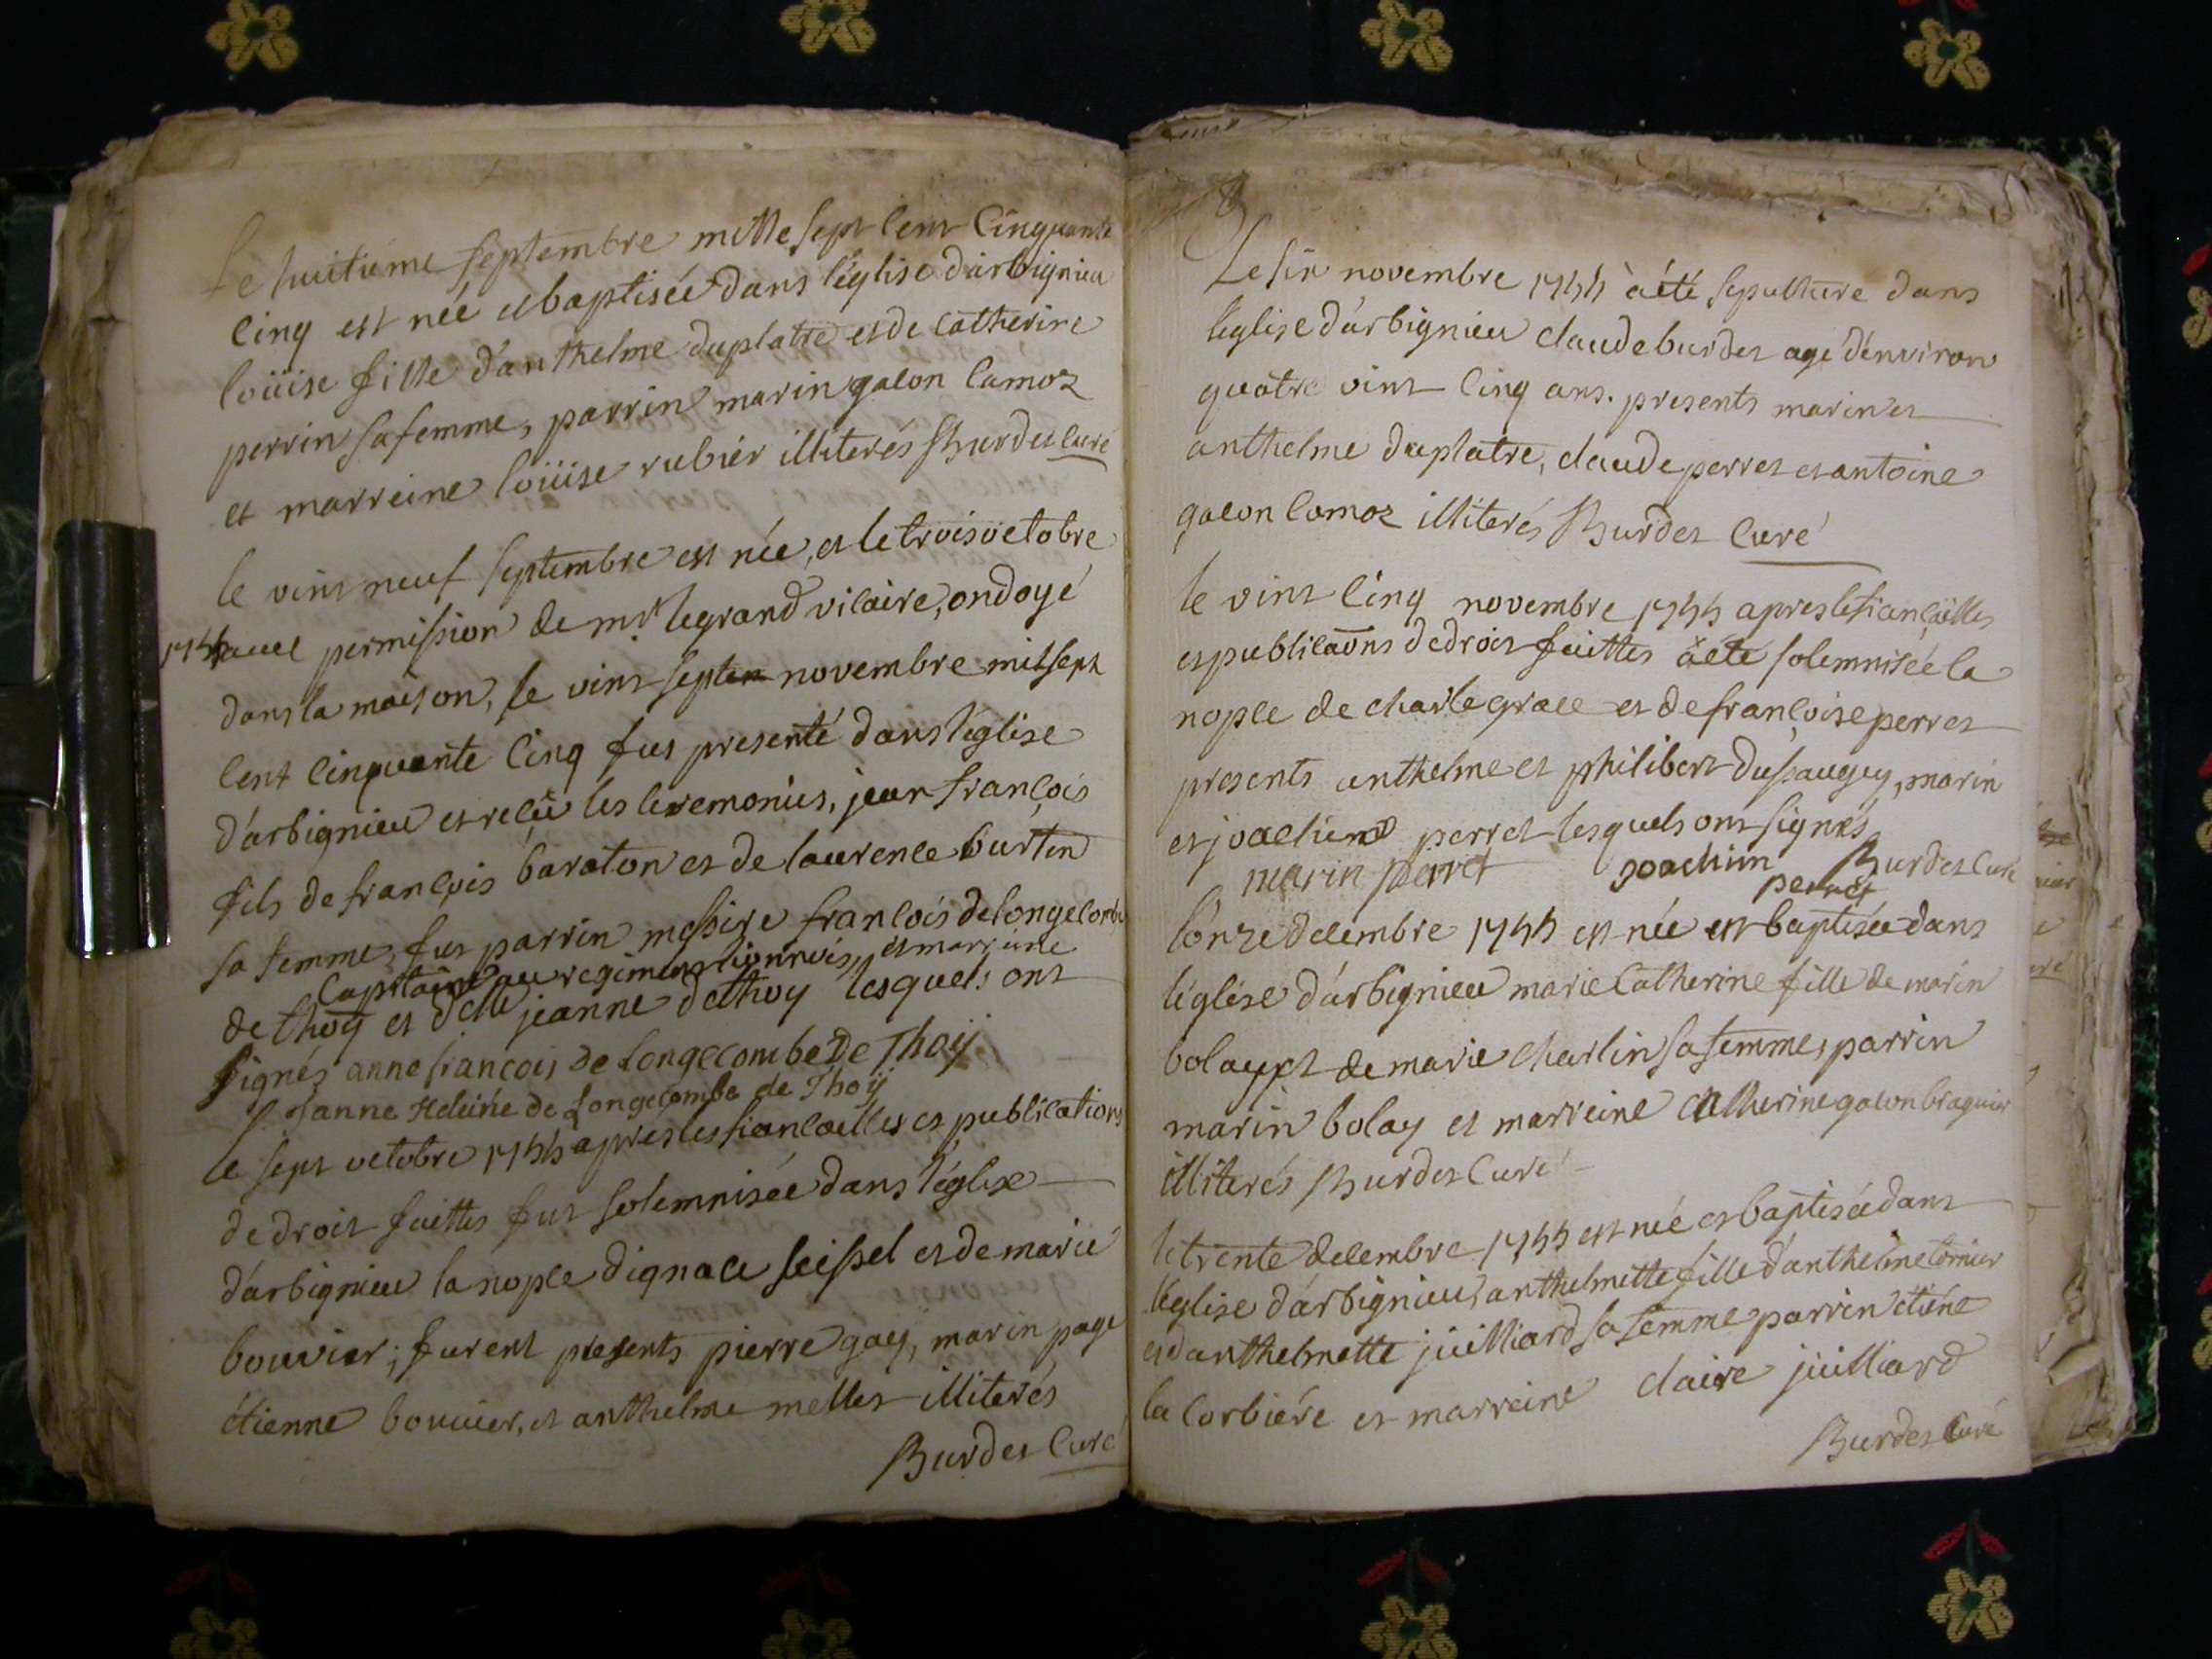 Le huitiéme septembre mille sept cent cinquante
cinq est née et baptisée dans l'église d'arbignieu
loüise fille d'anthelme duplatre et de catherine
perrin sa femme, parrin marin galon camoz
et marreine loüise rubier illiterés Burdet curé
le vint neuf septembre est née, et le trois octobre
1755 avec permission de mr le grand vicaire, ondoyé
dans la maison, le vint sept novembre mil sept
cent cinquante cinq fut presenté dans l'église
d'arbignieu et reçu les ceremonies, jean françois
fils de françois baraton et de laurence burtin
sa femme, fut parrin messire françois de longecombe
capitaine au regiment lionnois, et marreine
de thoy et delle jeanne de thoy lesquels ont
signés anne francois de Longecombe De Thoÿ
Janne Heleine de Longecombe de Thoÿ
le sept octobre 1755 apres les fiancailles et publications
de droit faittes fut solemnisée dans l'église
d'arbignieu la nopce d'ignace seissel et de marie
bouvier; furent presents pierre gay, marin page
étienne bouvier, et anthelme mellet illiterés
Burdet Curé
Le six novembre 1755 à été sepulture dans
l'eglise d'arbignieu claude burdet agé d'environ
quatre vint cinq ans. presents marin et
anthelme duplatre, claude perret et antoine
galon camoz illiterés Burdet Curé
le vint cinq novembre 1755 apres les fiançailles
et publicaōns de droit faittes à été solemnisée la
nopce de charle grace et de françoise perret
presents anthelme et philibert dussaugey, marin
et joachim perret lesquels ont signés
marin perret joachim perret Burdet Curé
l'onze decembre 1755 est née et baptisée dans
l'église d'arbignieu marie Catherine fille de marin
bolay et de marie charlin sa femme, parrin
marin bolay et marreine Catherine galon braquier
illiterés Burdet Curé
le trente decembre 1755 est née et baptisée dans
l'eglise d'arbignieu, anthelmette fille d'anthelme cornier
et d'anthelmette juilliard sa femme parrin étiéne
la corbiére et marreine claire juilliard
Burdet Curé